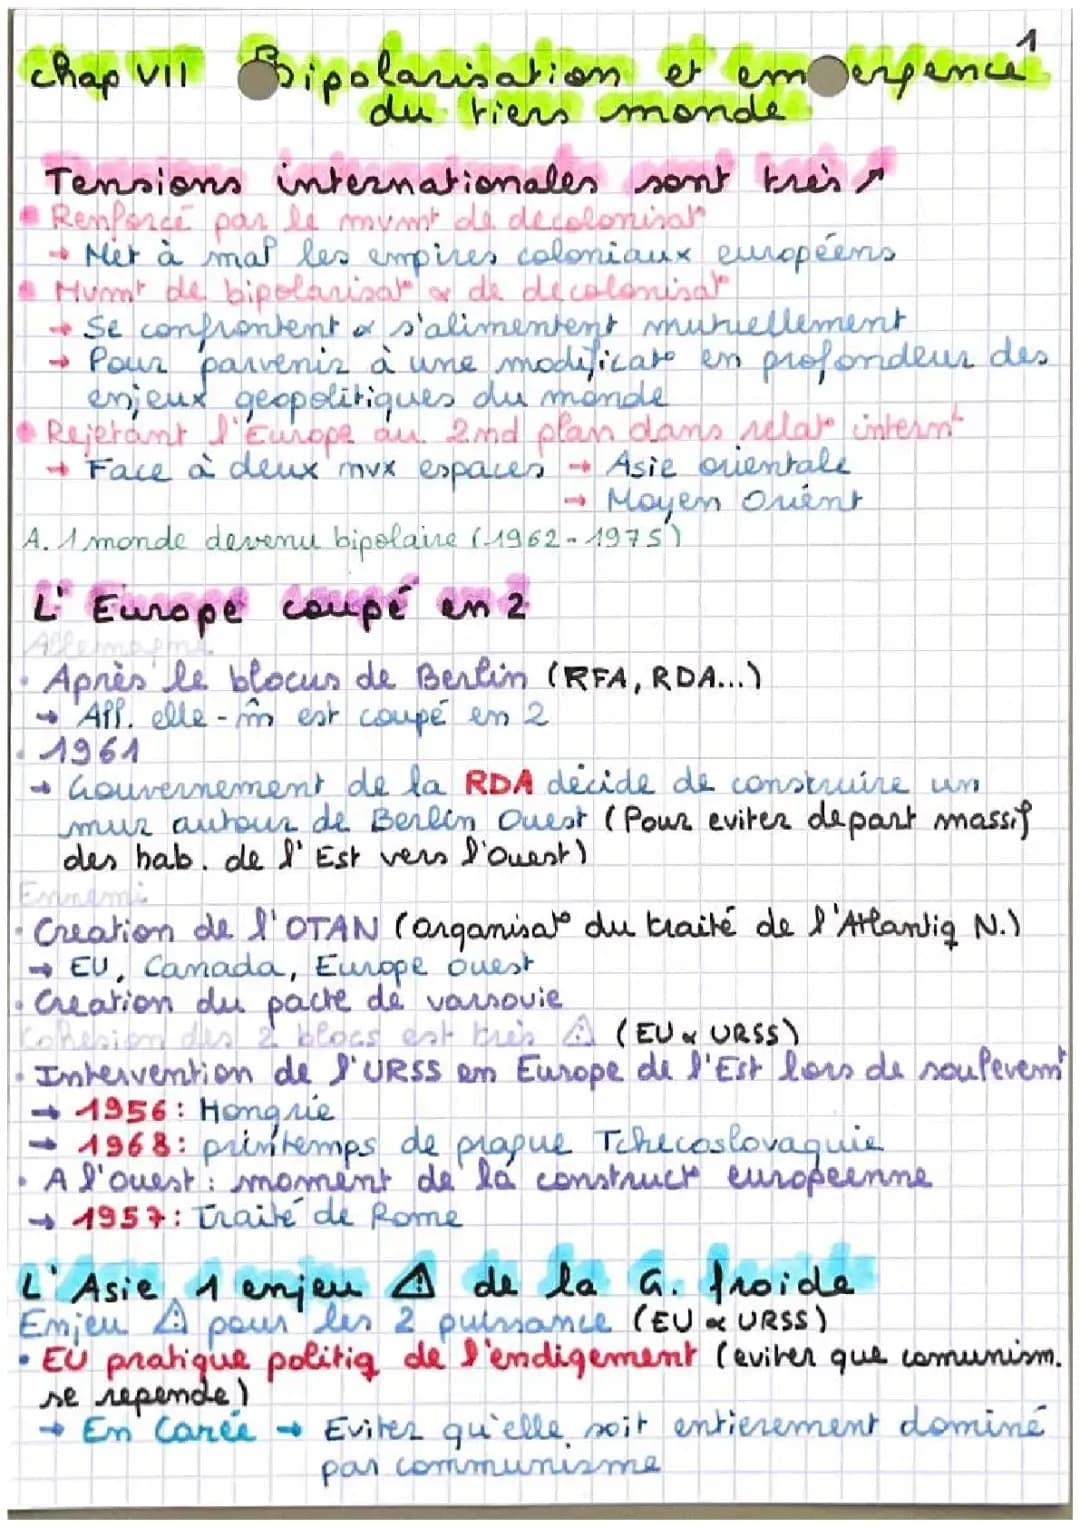 1
Chap VII Bipolarisation et emergence
du tiers monde
Tensions internationales sont très ↗
Renforcé par le mvmt de decolonisat°
→ Met à mal les empires coloniaux européens
Mvmt de bipolarisat° & de decolonisat°
→ Se confrontent & s'alimentent mutuellement
→ Pour parvenir à une modificat° en profondeur des
enjeux geopolitiques du monde
Rejetant l'Europe au 2nd plan dans relat° internt
→ Face à deux nvx espaces → Asie orientale
→ Moyen Orient
A. 1 monde devenu bipolaire (1962-1975)
L'Europe coupé en 2
Allemagne
• Après le blocus de Berlin (RFA, RDA...)
→ All. elle-m̂ est coupé en 2
• 1961
→ Gouvernement de la RDA décide de construire un
mur autour de Berlin Ouest (Pour eviter depart massif
des hab. de l'Est vers l'Ouest)
Ennemi
• Creation de l'OTAN (Organisat° du traité de l'Atlantiq N.)
→ EU, Canada, Europe ouest
• Creation du pacte de varsovie
Cohesion des 2 blocs est très ⚠ (EU & URSS)
• Intervention de l'URSS en Europe de l'Est lors de soulevemt
→ 1956: Hongrie
→ 1968: printemps de prague Tchecoslovaquie
• A l'ouest: moment de la construct° européenne
→ 1957: Traité de Rome
L'Asie, 1 enjeu ⚠ de la G. froide
Enjeu ⚠ pour les 2 puissance (EU & URSS)
• EU pratique politiq de l'endigement (eviter que comunism.
se repende)
→ En Corée → Eviter qu'elle soit entierement dominé
par communisme